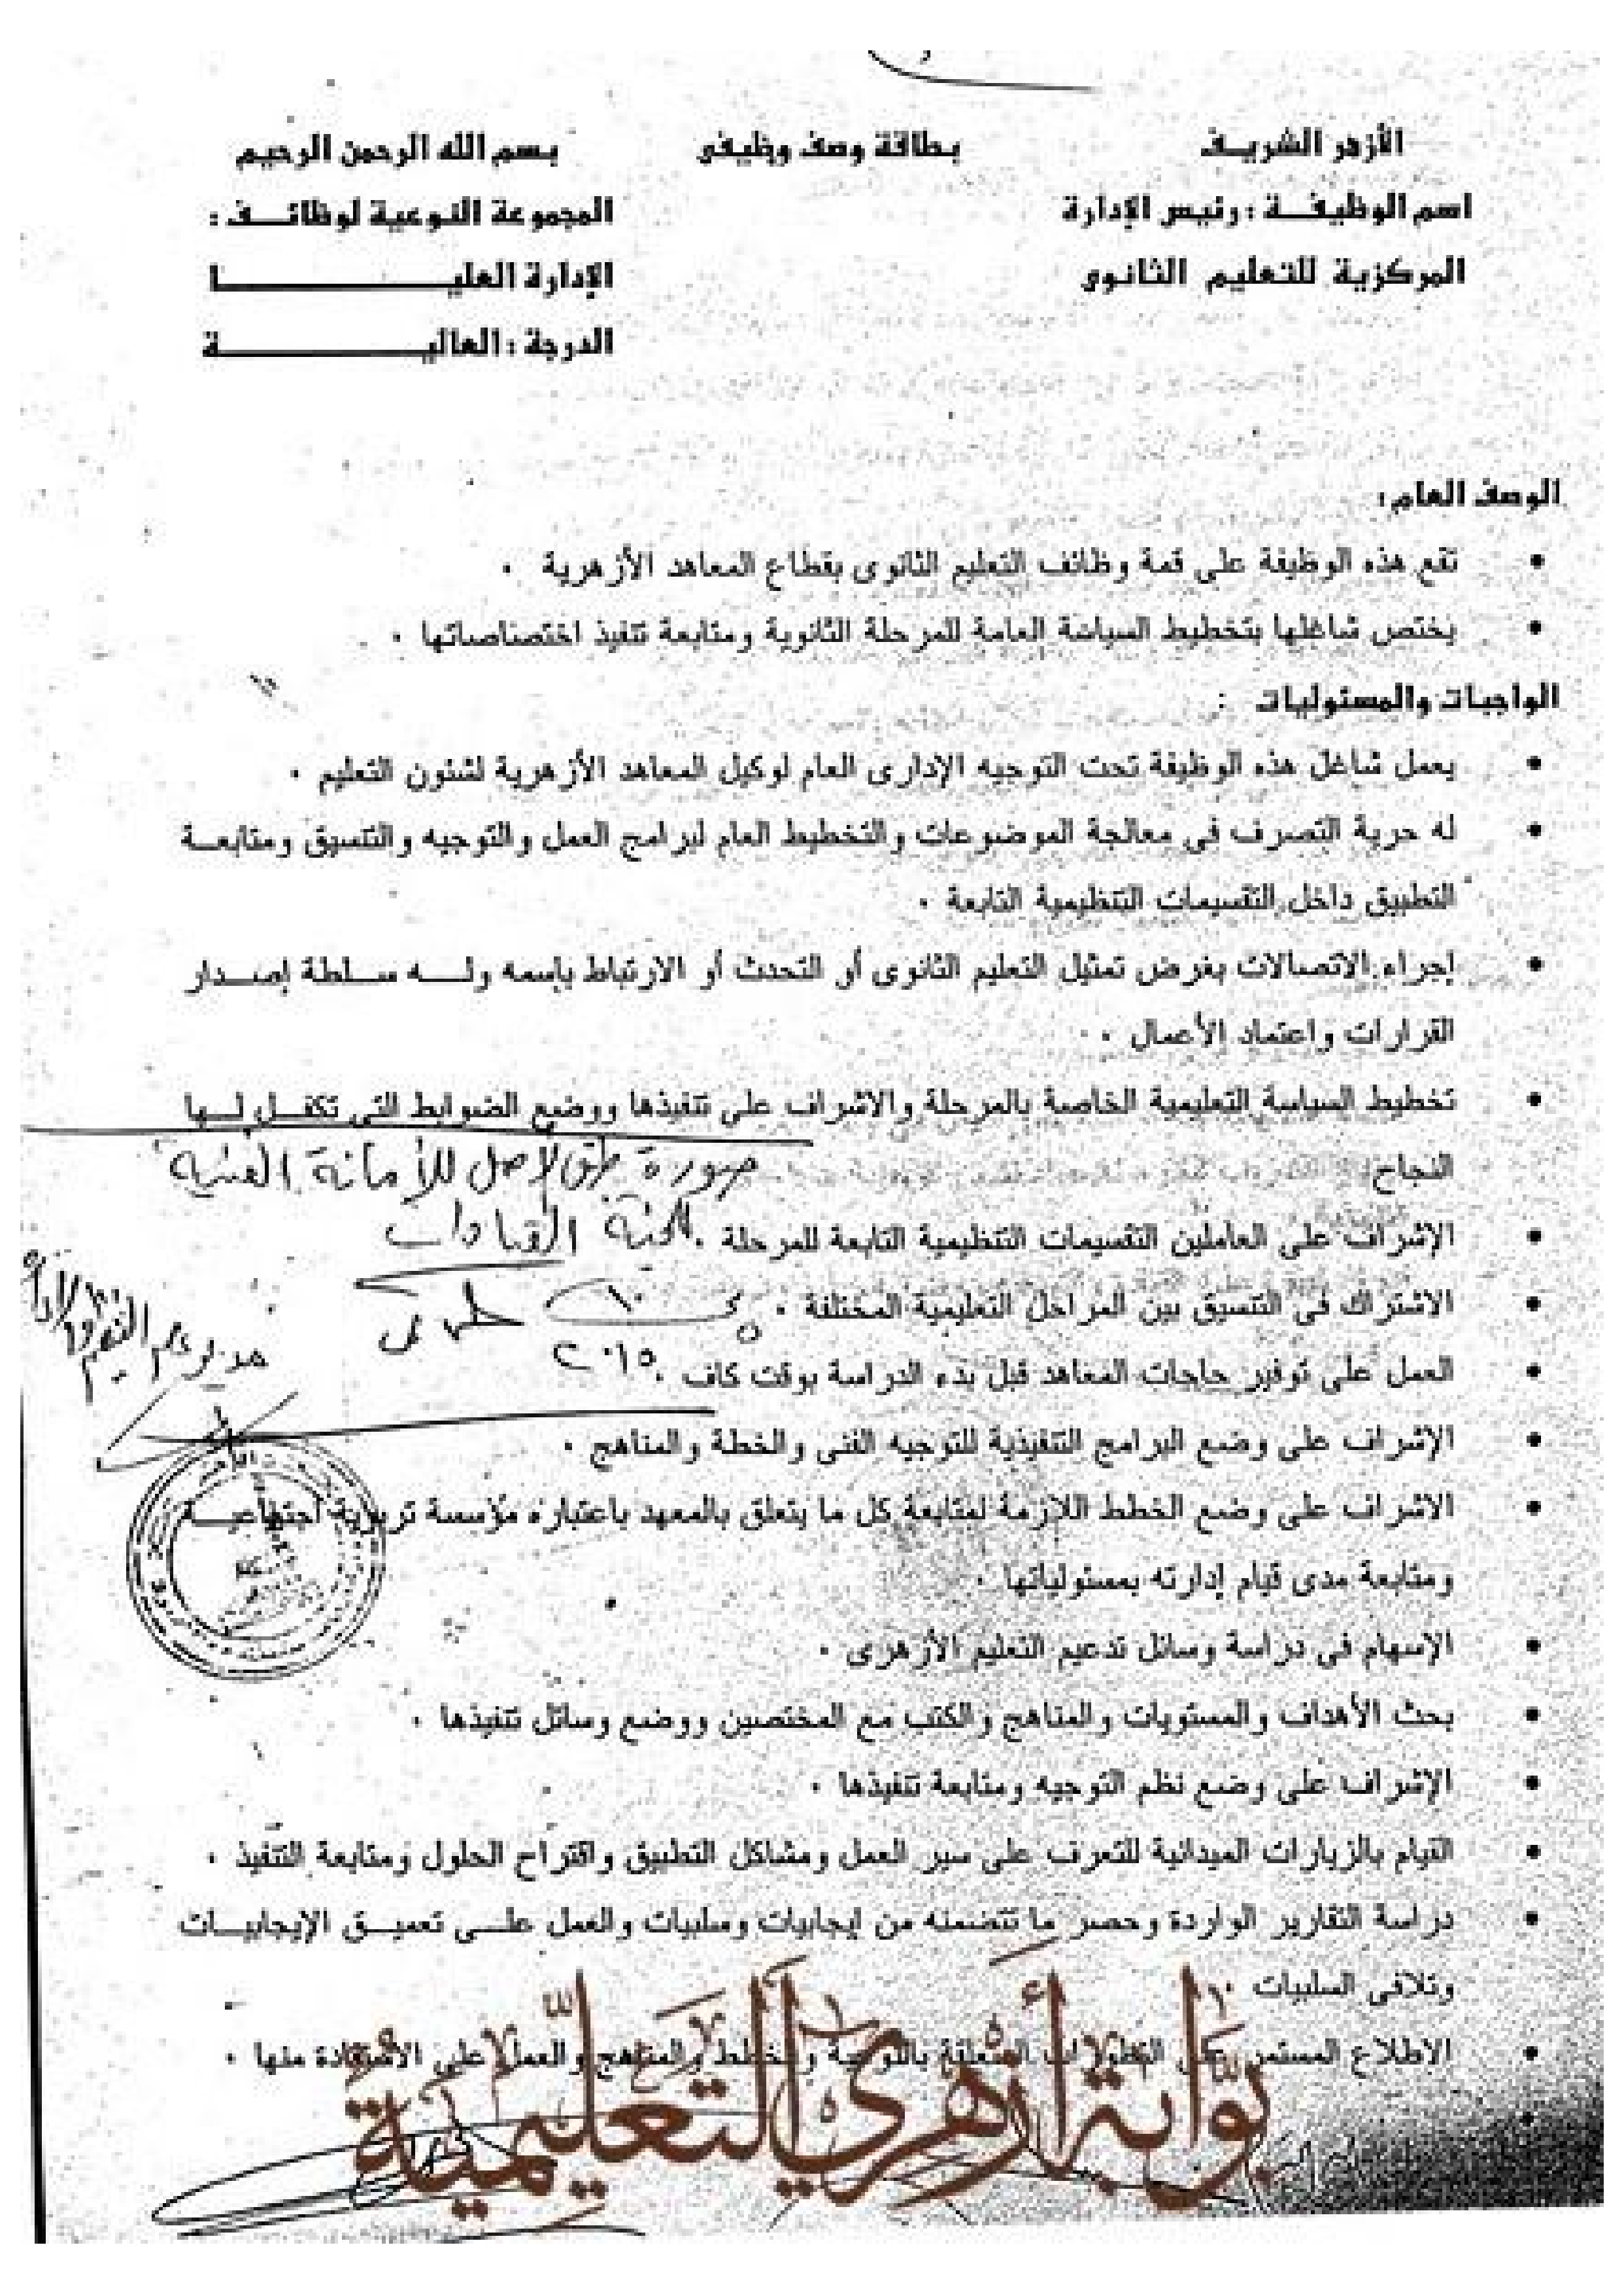 الأزهر الشريف
بطاقة وصف وظيفى
بسم الله الرحمن الرحيم
اسم الوظيفة : رئيس الإدارة
المجموعة النوعية لوظائف :
المركزية للتعليم الثانوى
الإدارة العليا
الدرجة : العالية
الوصف العام :
• تقع هذه الوظيفة على قمة وظائف التعليم الثانوى بقطاع المعاهد الأزهرية .
• يختص شاغلها بتخطيط السياسة العامة للمرحلة الثانوية ومتابعة تنفيذ اختصاصاتها .
الواجبات والمسئوليات :
• يعمل شاغل هذه الوظيفة تحت التوجيه الإدارى العام لوكيل المعاهد الأزهرية لشئون التعليم .
• له حرية التصرف فى معالجة الموضوعات والتخطيط العام لبرامج العمل والتوجيه والتنسيق ومتابعة
التطبيق داخل التقسيمات التنظيمية التابعة .
• إجراء الاتصالات بغرض تمثيل التعليم الثانوى أو التحدث أو الارتباط بإسمه وله سلطة إصدار
القرارات واعتماد الأعمال .
• تخطيط السياسة التعليمية الخاصة بالمرحلة والاشراف على تنفيذها ووضع الضوابط التى تكفل لها
النجاح
صورة طبق الأصل للأمانة الفنية
• الإشراف على العاملين التقسيمات التنظيمية التابعة للمرحلة .
لجنة القيادات
• الاشتراك فى التنسيق بين المراحل التعليمية المختلفة .
• العمل على توفير حاجات المعاهد قبل بدء الدراسة بوقت كاف .
٢٠١٥
مدير عام التنظيم والإدارة
• الإشراف على وضع البرامج التنفيذية للتوجيه الفنى والخطة والمناهج .
• الاشراف على وضع الخطط اللازمة لمتابعة كل ما يتعلق بالمعهد باعتباره مؤسسة تربوية اجتماعية
ومتابعة مدى قيام إدارته بمسئولياتها .
• الإسهام فى دراسة وسائل تدعيم التعليم الأزهرى .
• بحث الأهداف والمستويات والمناهج والكتب مع المختصين ووضع وسائل تنفيذها .
• الإشراف على وضع نظم التوجيه ومتابعة تنفيذها .
• القيام بالزيارات الميدانية للتعرف على سير العمل ومشاكل التطبيق واقتراح الحلول ومتابعة التنفيذ .
• دراسة التقارير الواردة وحصر ما تتضمنه من إيجابيات وسلبيات والعمل على تعميق الإيجابيات
وتلافى السلبيات .
• الاطلاع المستمر على التطورات المتعلقة بالتوجيه والخطط والمناهج والعمل على الاستفادة منها .
بوابة أزهري التعليمية